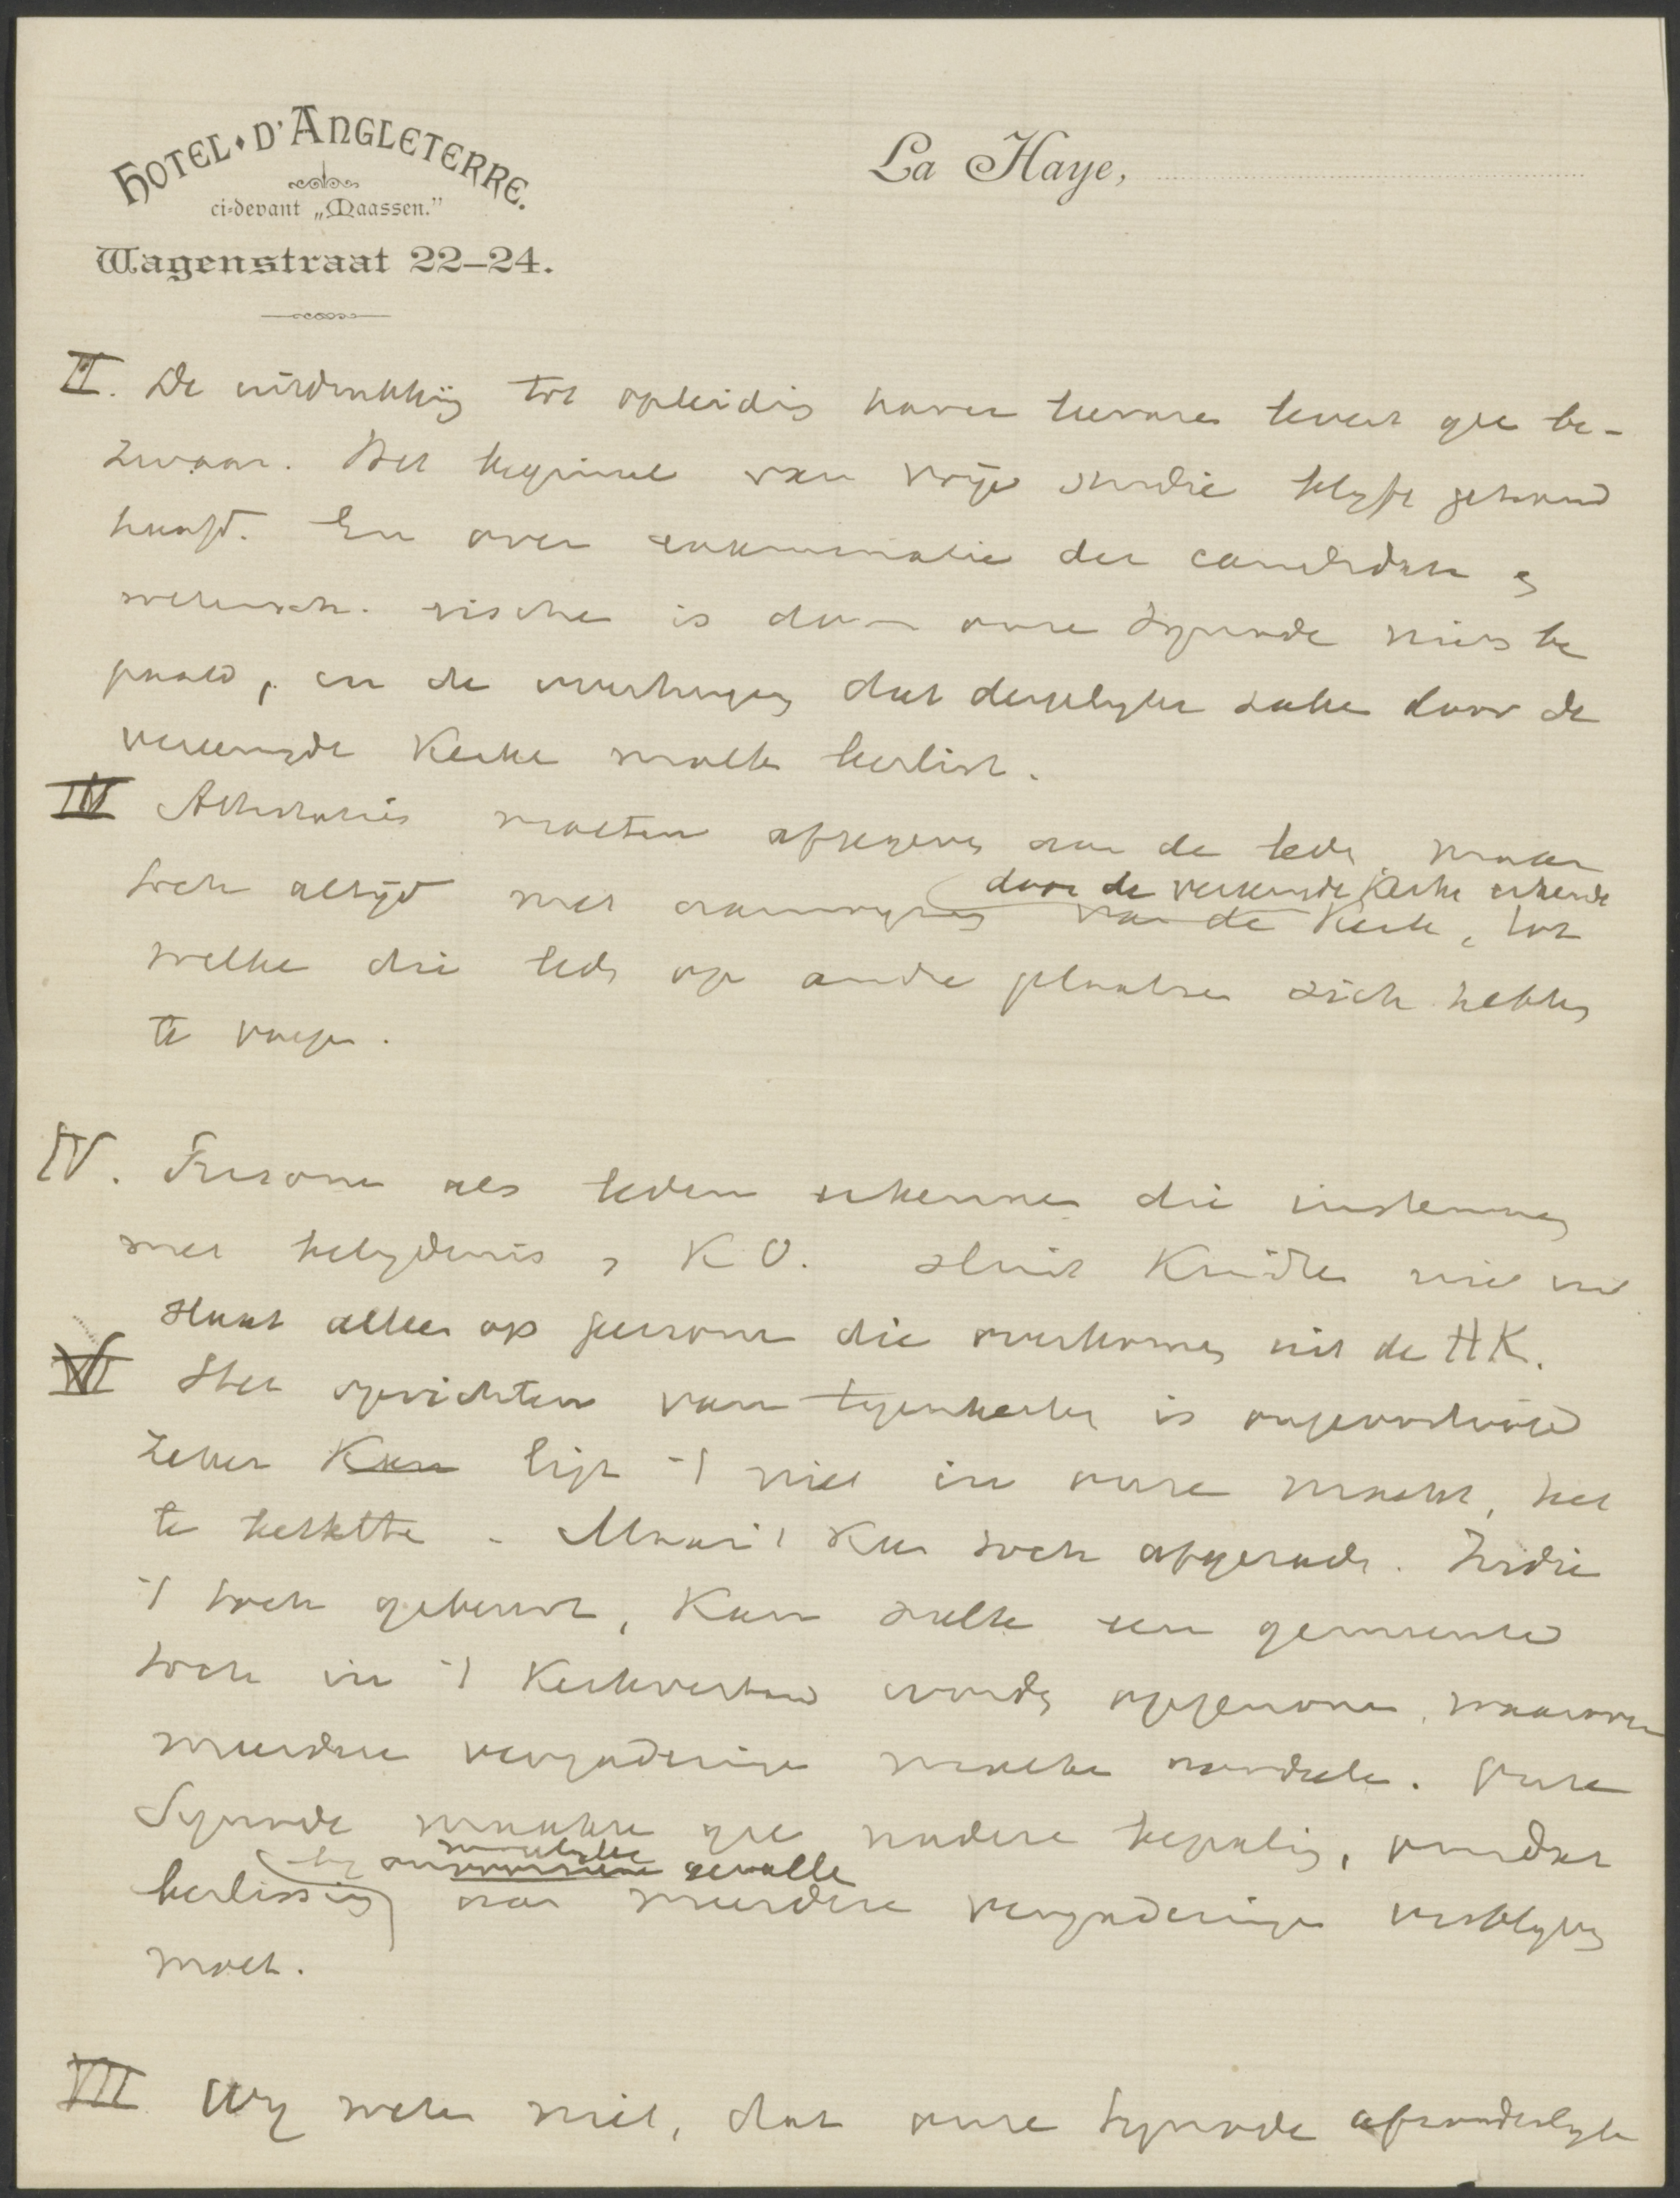 HOTEL D'ANGLETERRE.
ci-devant „Maassen."
Wagenstraat 22–24.
La Haye,
II. De uitdrukking tot opleiding harer leeraren levert geen be-
zwaar. Het beginsel van vrije studie blijft gehand
haafd. En over examinatie der candidaten en
wetensch. is door onze Synode niets be
paald, in de overtuiging dat dergelijke zaken door de
vereenigde Kerken moeten beslist.
III Attestaties moeten afgegeven aan de leden, maar
toch altijd met aanwijzing van de Kerk, tot
door de vereenigde Kerken erkende
welke die leden op andere plaatsen zich hebben
te voegen.
IV. Personen als leden erkennen die instemming
met belijdenis en KO. sluit Kinderen niet uit
slaat alleen op personen die overkomen uit de HK.
VI Het oprichten van tegenkerken is ongeoorloofd
Zeker Kan ligt 't niet in onze macht, het
te beletten. Maar 't Kan toch afgeraden. Indien
't toch gebeurt, Kan zulk een gemeente
toch in 't Kerkverband worden opgenomen, waarover
meerdere vergaderingen moeten oordeelen. Onze
Synode maakte geen nadere bepaling, omdat
moeilijke
gevallen
beslissing aan meerdere vergaderingen verblijven
moet.
VII Wij weten niet, dat onze Synode afzonderlijke